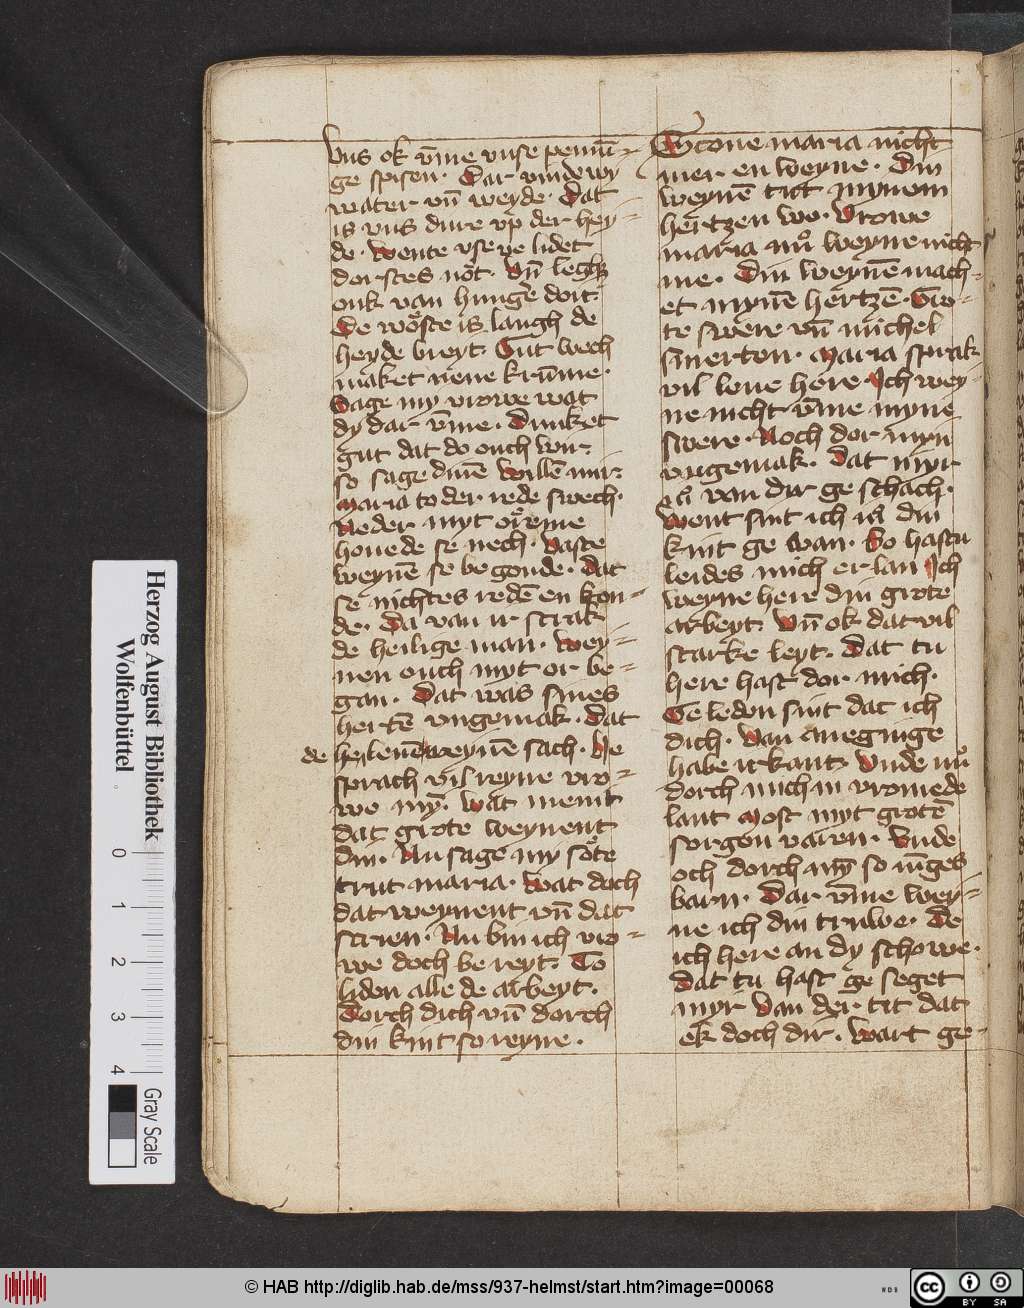 vns ok vm̄e vnse pennī-
ge spisen. Dar vinde wy
water vn̄ weyde. Dat
is vns dure vp der hey-
de. Wente vse ve lidet
dorstes not. Vn̄
ouk van hunger doit.
De woͤste is langh de
heyde breyt. Gut wech
maket nene krūme.
Sage my vrowe wat
dy dar vm̄e. Dunket
gut dat do ouch wir
so sage dinē willē mir.
Maria to der rede swech.
Neder myt oreme
houede se nech. Vaste
weynē se be gonde. Dat
se nichtes redē en kon-
de. Da van ir sprak
de heilige man. Wey-
nen ouch myt or be-
gan. Dat was sines
hertē vngemak. Dat
de heylenē weynē sach. He
sprach vil reyne vro-
we myn. Wat meint
dat grote weynent
din. Nu sage my soͤte
trut maria. Wat doch
dat weynent vn̄ dat
scrien. Nu bin ich vro-
we doch be reyt. To
liden alle de arbeyt.
Dorch dich vn̄ dorch
din kint so reyne.
Scone maria nicht
mer en weyne. Din
weynē tut mynem
hertzen wo. Vrowe
maria nu weyne nicht
me. Din weynē mach-
et mynē hertzē. Gro-
te swere vn̄ michel
smerten. Maria sprak
vil leue here. Ich wey-
ne nicht vm̄e myne
swere. Noch dor myn
vngemak. Dat myr
van dir ge schach.
Went sint ich din
kint ge wan. So hastu
leides mich er lan Ich
weyne here din grote
arbeyt. Vn̄ ok dat vil
starke leyt. Dat tu
here hast dor mich.
Ge ledon sint dat ich
dich. Van aneginge
habe irkant. Vnde nu
dorch mich in vromede
lant Most myt grotē
sorgen varen. Vnde
och dorch myn so
barn. Dar vm̄e wey-
ne ich din truwe. De
ich here an dy schowe.
Dat tu hast ge seget
myr Van der tit dat
ek doch dir. Wart ge-
Herzog August Bibliothek
Wolfenbüttel
0 1 2 3 4
Gray Scale
© HAB http://diglib.hab.de/mss/937-helmst/start.htm?image=00068
WDB
cc BY SA